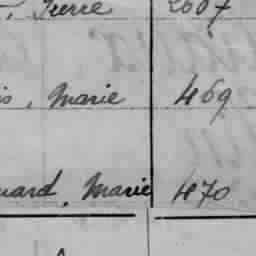 , Pierre 2607
is, Marie 469
uard, Marie 470